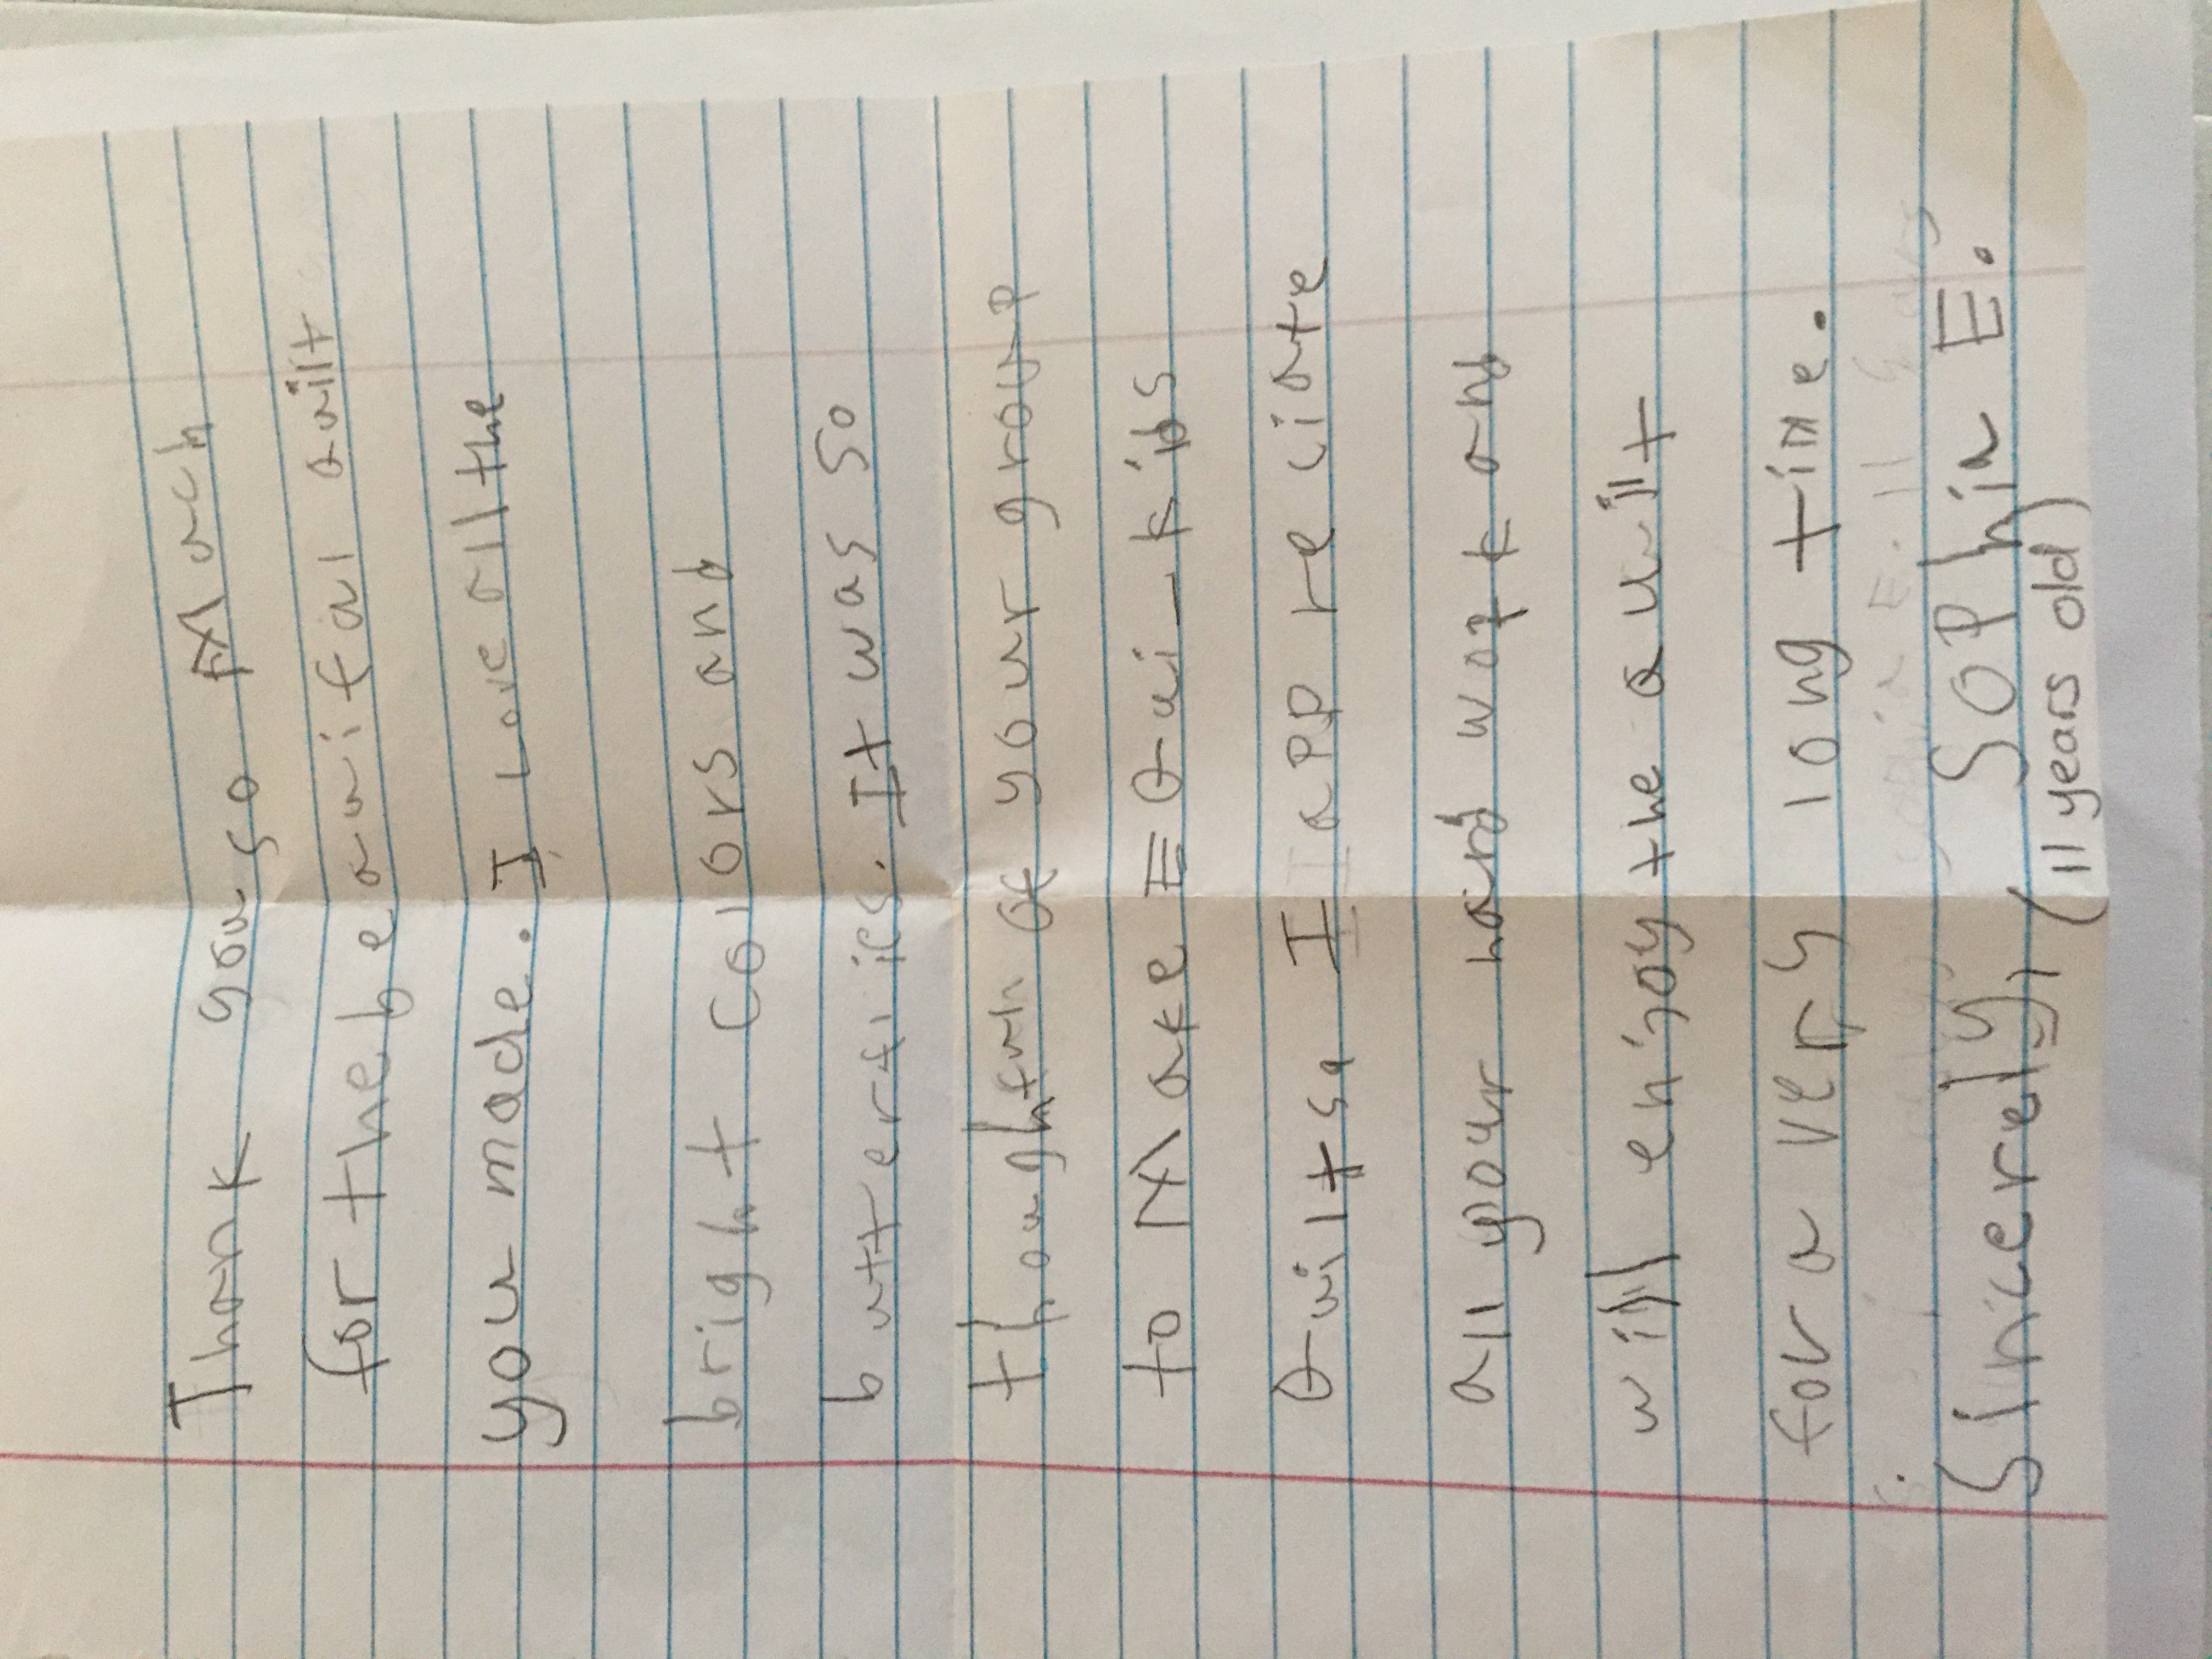 Thank you so Much
for the beautiful quilt
you made. I Love all the
bright colors and
butterflies. It was so
thoughtful of your group
to Make EQui-kids
Quilts. I appreciate
all your hard work and
will enjoy the quilt
for a very long time.
Sincerely, SoPhia E.
(11 years old)